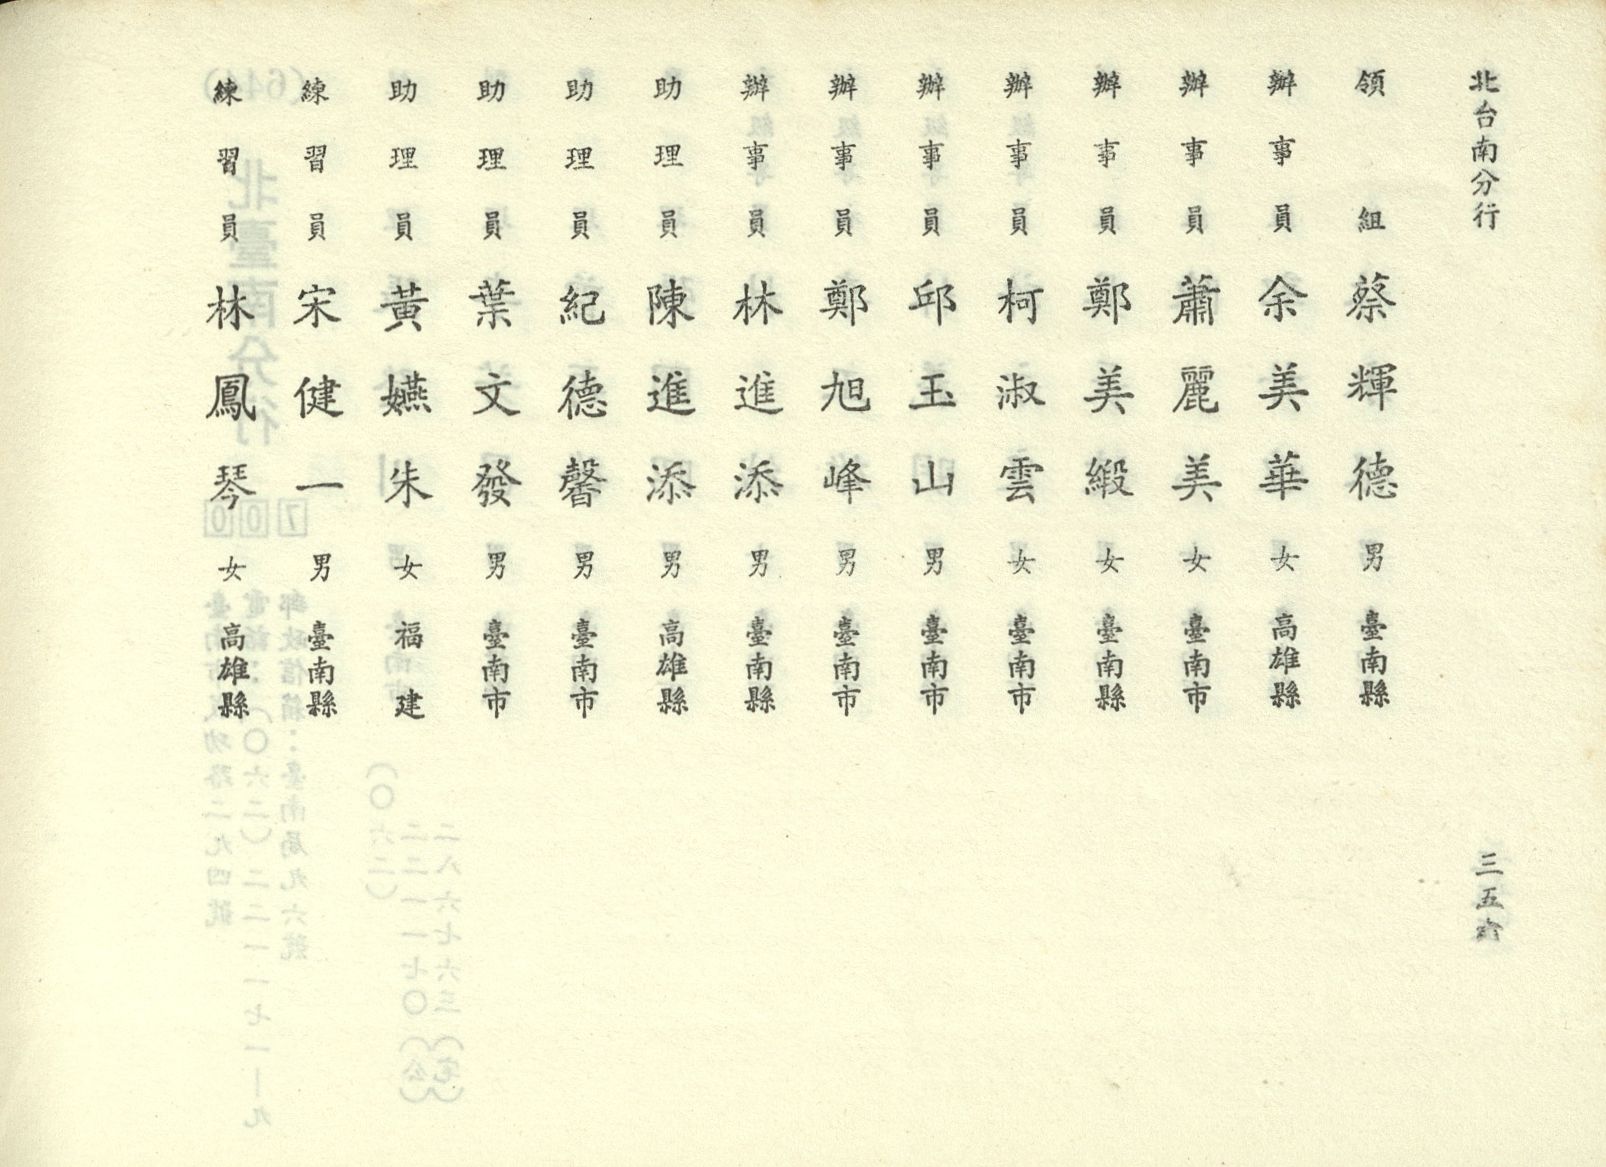 北台南分行
領組 蔡輝德 男 臺南縣
辦事員 余美華 女 高雄縣
辦事員 蕭麗美 女 臺南市
辦事員 鄭美緞 女 臺南縣
辦事員 柯淑雲 女 臺南市
辦事員 邱玉山 男 臺南市
辦事員 鄭旭峰 男 臺南市
辦事員 林進添 男 臺南縣
助理員 陳進添 男 高雄縣
助理員 紀德馨 男 臺南市
助理員 葉文發 男 臺南市
助理員 黃嬿朱 女 福建
練習員 宋健一 男 臺南縣
練習員 林鳳琴 女 高雄縣
三五六